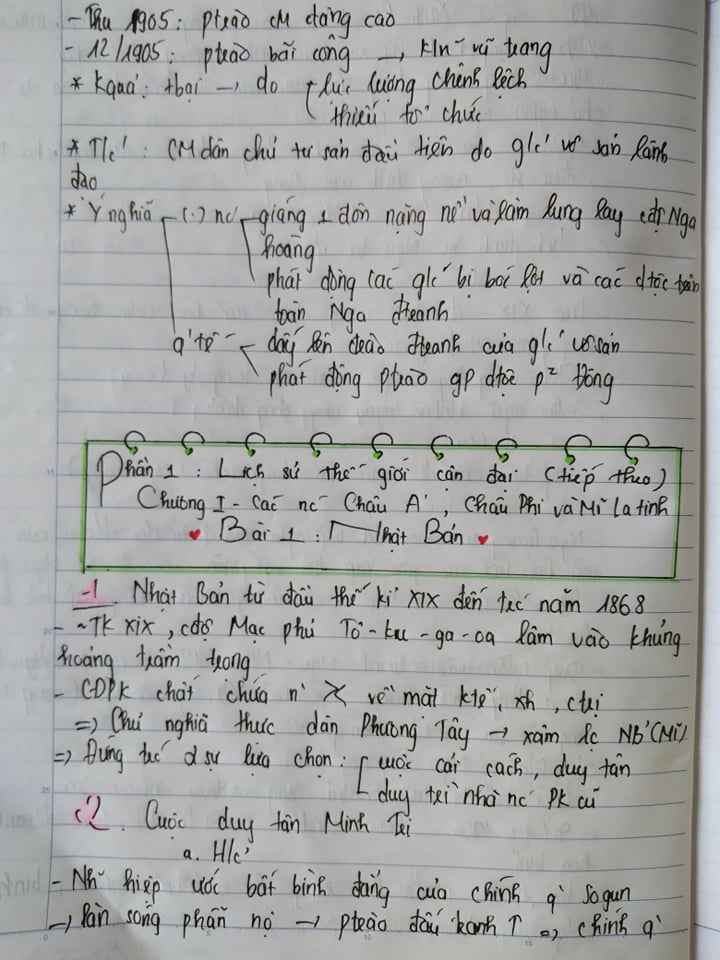 - Thu 1905: ptrào CM dâng cao
- 12/1905: ptrào bãi công → kn vũ trang
* Kquả: tbại → do lực lượng chênh lệch
thiếu tổ chức
* T/c: CM dân chủ tư sản đầu tiên do g/c vô sản lãnh
đạo
* Ý nghĩa (.) nc giáng 1 đòn nặng nề và làm lung lay cđộ Nga
hoàng
phát động các g/c bị bóc lột và các dtộc
toàn Nga đtranh
q'tế dấy lên ptrào đtranh của g/c vô sản
phát động ptrào gp dtộc p² Đông
Phần 1: Lịch sử thế giới cận đại (tiếp theo)
Chương I - Các nc Châu Á, Châu Phi và Mĩ La tinh
♥ Bài 1: Nhật Bản ♥
1. Nhật Bản từ đầu thế kỉ XIX đến trc năm 1868
- ~TK XIX, cđộ Mạc phủ Tô-ku-ga-oa lâm vào khủng
hoảng trầm trọng
- CĐPK chất chứa n' >< về mặt ktế, xh, ctrị
=> Chủ nghĩa thực dân Phương Tây → xâm lc NB (Mĩ)
=> Đứng trc 2 sự lựa chọn: cuộc cải cách, duy tân
duy trì nhà nc PK cũ
2. Cuộc duy tân Minh Trị
a. H/c
- Nh~ hiệp ước bất bình đẳng của chính q' Sôgun
→ làn sóng phẫn nộ → ptrào đấu tranh ↑ => chính q'